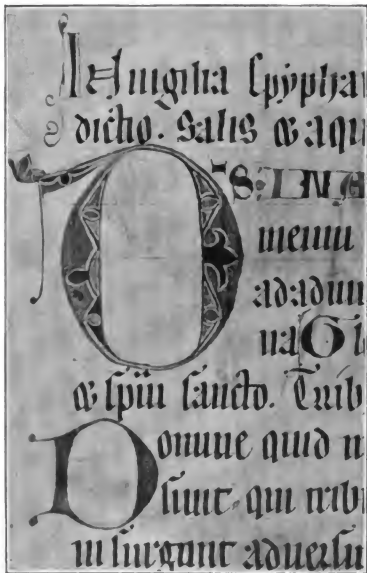 In uigilia epypha
dictio. Salis & aqu
DS: IN A
meum
adadiuu
na Gl
& spiu sancto. Trib
Domine quid m
sunt. qui trib
in surgunt aduersu